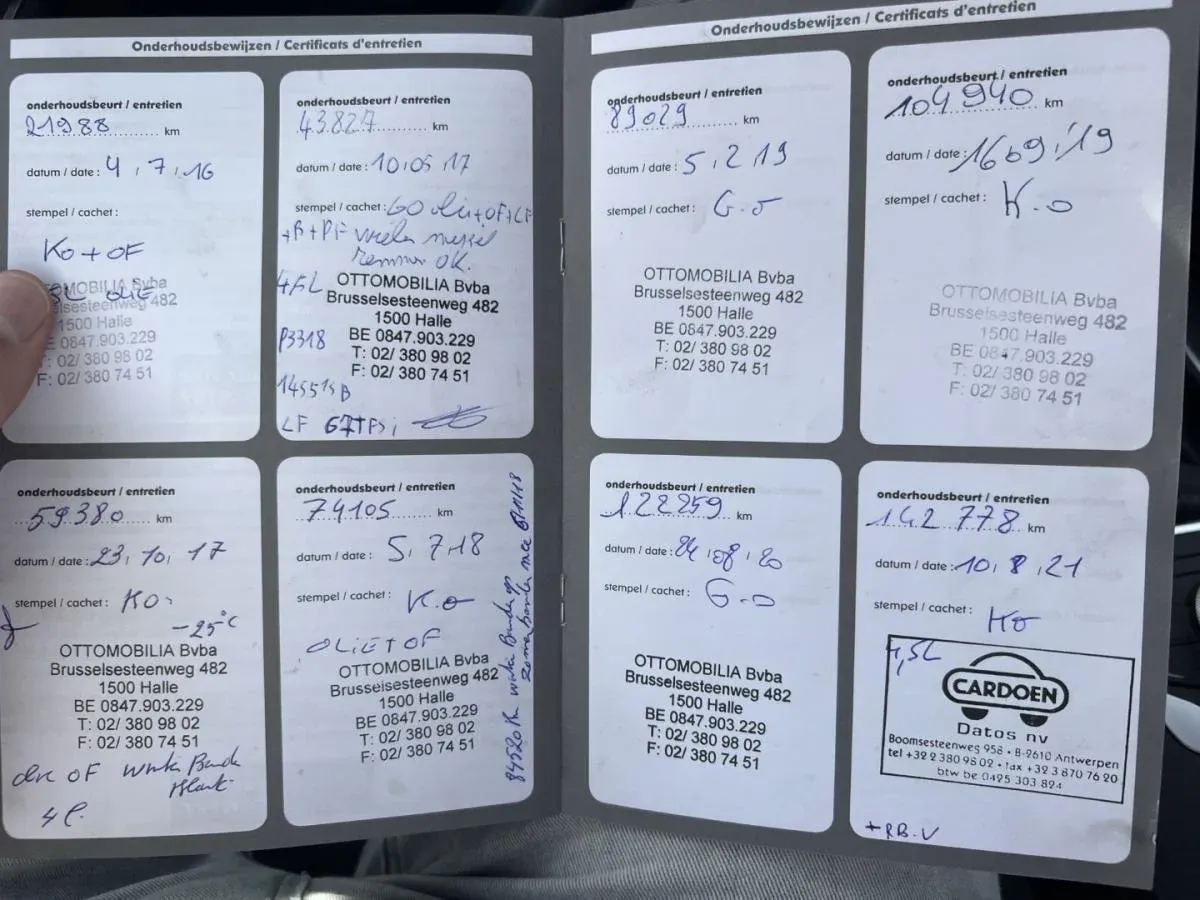 Onderhoudsbewijzen / Certificats d'entretien
onderhoudsbeurt / entretien
21988 km
datum / date : 4 , 7 , 16
stempel / cachet :
KO + OF
OLIE
OTTOMOBILIA Bvba
Brusselsesteenweg 482
1500 Halle
BE 0847.903.229
T: 02/ 380 98 02
F: 02/ 380 74 51
onderhoudsbeurt / entretien
43827 km
datum / date : 10,05,17
stempel / cachet : GO olie+OF+LF
OK.
OTTOMOBILIA Bvba
Brusselsesteenweg 482
1500 Halle
BE 0847.903.229
T: 02/ 380 98 02
F: 02/ 380 74 51
P3318
LF
onderhoudsbeurt / entretien
59380 km
datum / date : 23, 10, 17
stempel / cachet : KO
-25°C
OTTOMOBILIA Bvba
Brusselsesteenweg 482
1500 Halle
BE 0847.903.229
T: 02/ 380 98 02
F: 02/ 380 74 51
OF
onderhoudsbeurt / entretien
74105 km
datum / date : 5, 7,18
stempel / cachet : K.O
OLIE + OF
OTTOMOBILIA Bvba
Brusselsesteenweg 482
1500 Halle
BE 0847.903.229
T: 02/ 380 98 02
F: 02/ 380 74 51
84520 Km
Onderhoudsbewijzen / Certificats d'entretien
onderhoudsbeurt / entretien
89029 km
datum / date : 5 , 2 , 19
stempel / cachet : G.O
OTTOMOBILIA Bvba
Brusselsesteenweg 482
1500 Halle
BE 0847.903.229
T: 02/ 380 98 02
F: 02/ 380 74 51
onderhoudsbeurt / entretien
104940 km
datum / date : 16 09 '19
stempel / cachet : K.O
OTTOMOBILIA Bvba
Brusselsesteenweg 482
1500 Halle
BE 0847.903.229
T: 02/ 380 98 02
F: 02/ 380 74 51
onderhoudsbeurt / entretien
122259 km
datum / date : 24,08,20
stempel / cachet : G.O
OTTOMOBILIA Bvba
Brusselsesteenweg 482
1500 Halle
BE 0847.903.229
T: 02/ 380 98 02
F: 02/ 380 74 51
onderhoudsbeurt / entretien
142 778 km
datum / date : 10, 8 ,21
stempel / cachet : KO
4,5L
CARDOEN
Datos nv
Boomsesteenweg 958 • B-2610 Antwerpen
tel +32 2 380 98 02 • fax +32 3 870 76 20
btw be 0425 303 824
+ RB.V